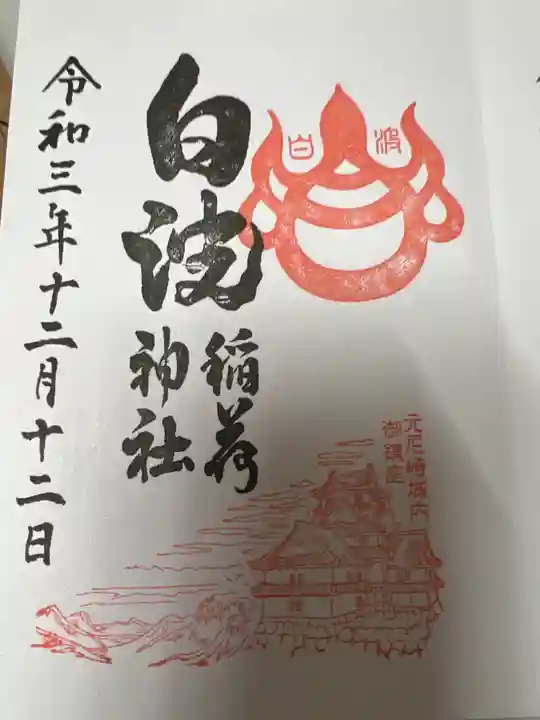 白波
元尼崎城内
御鎮座
白波
稲荷
神社
令和三年十二月十二日